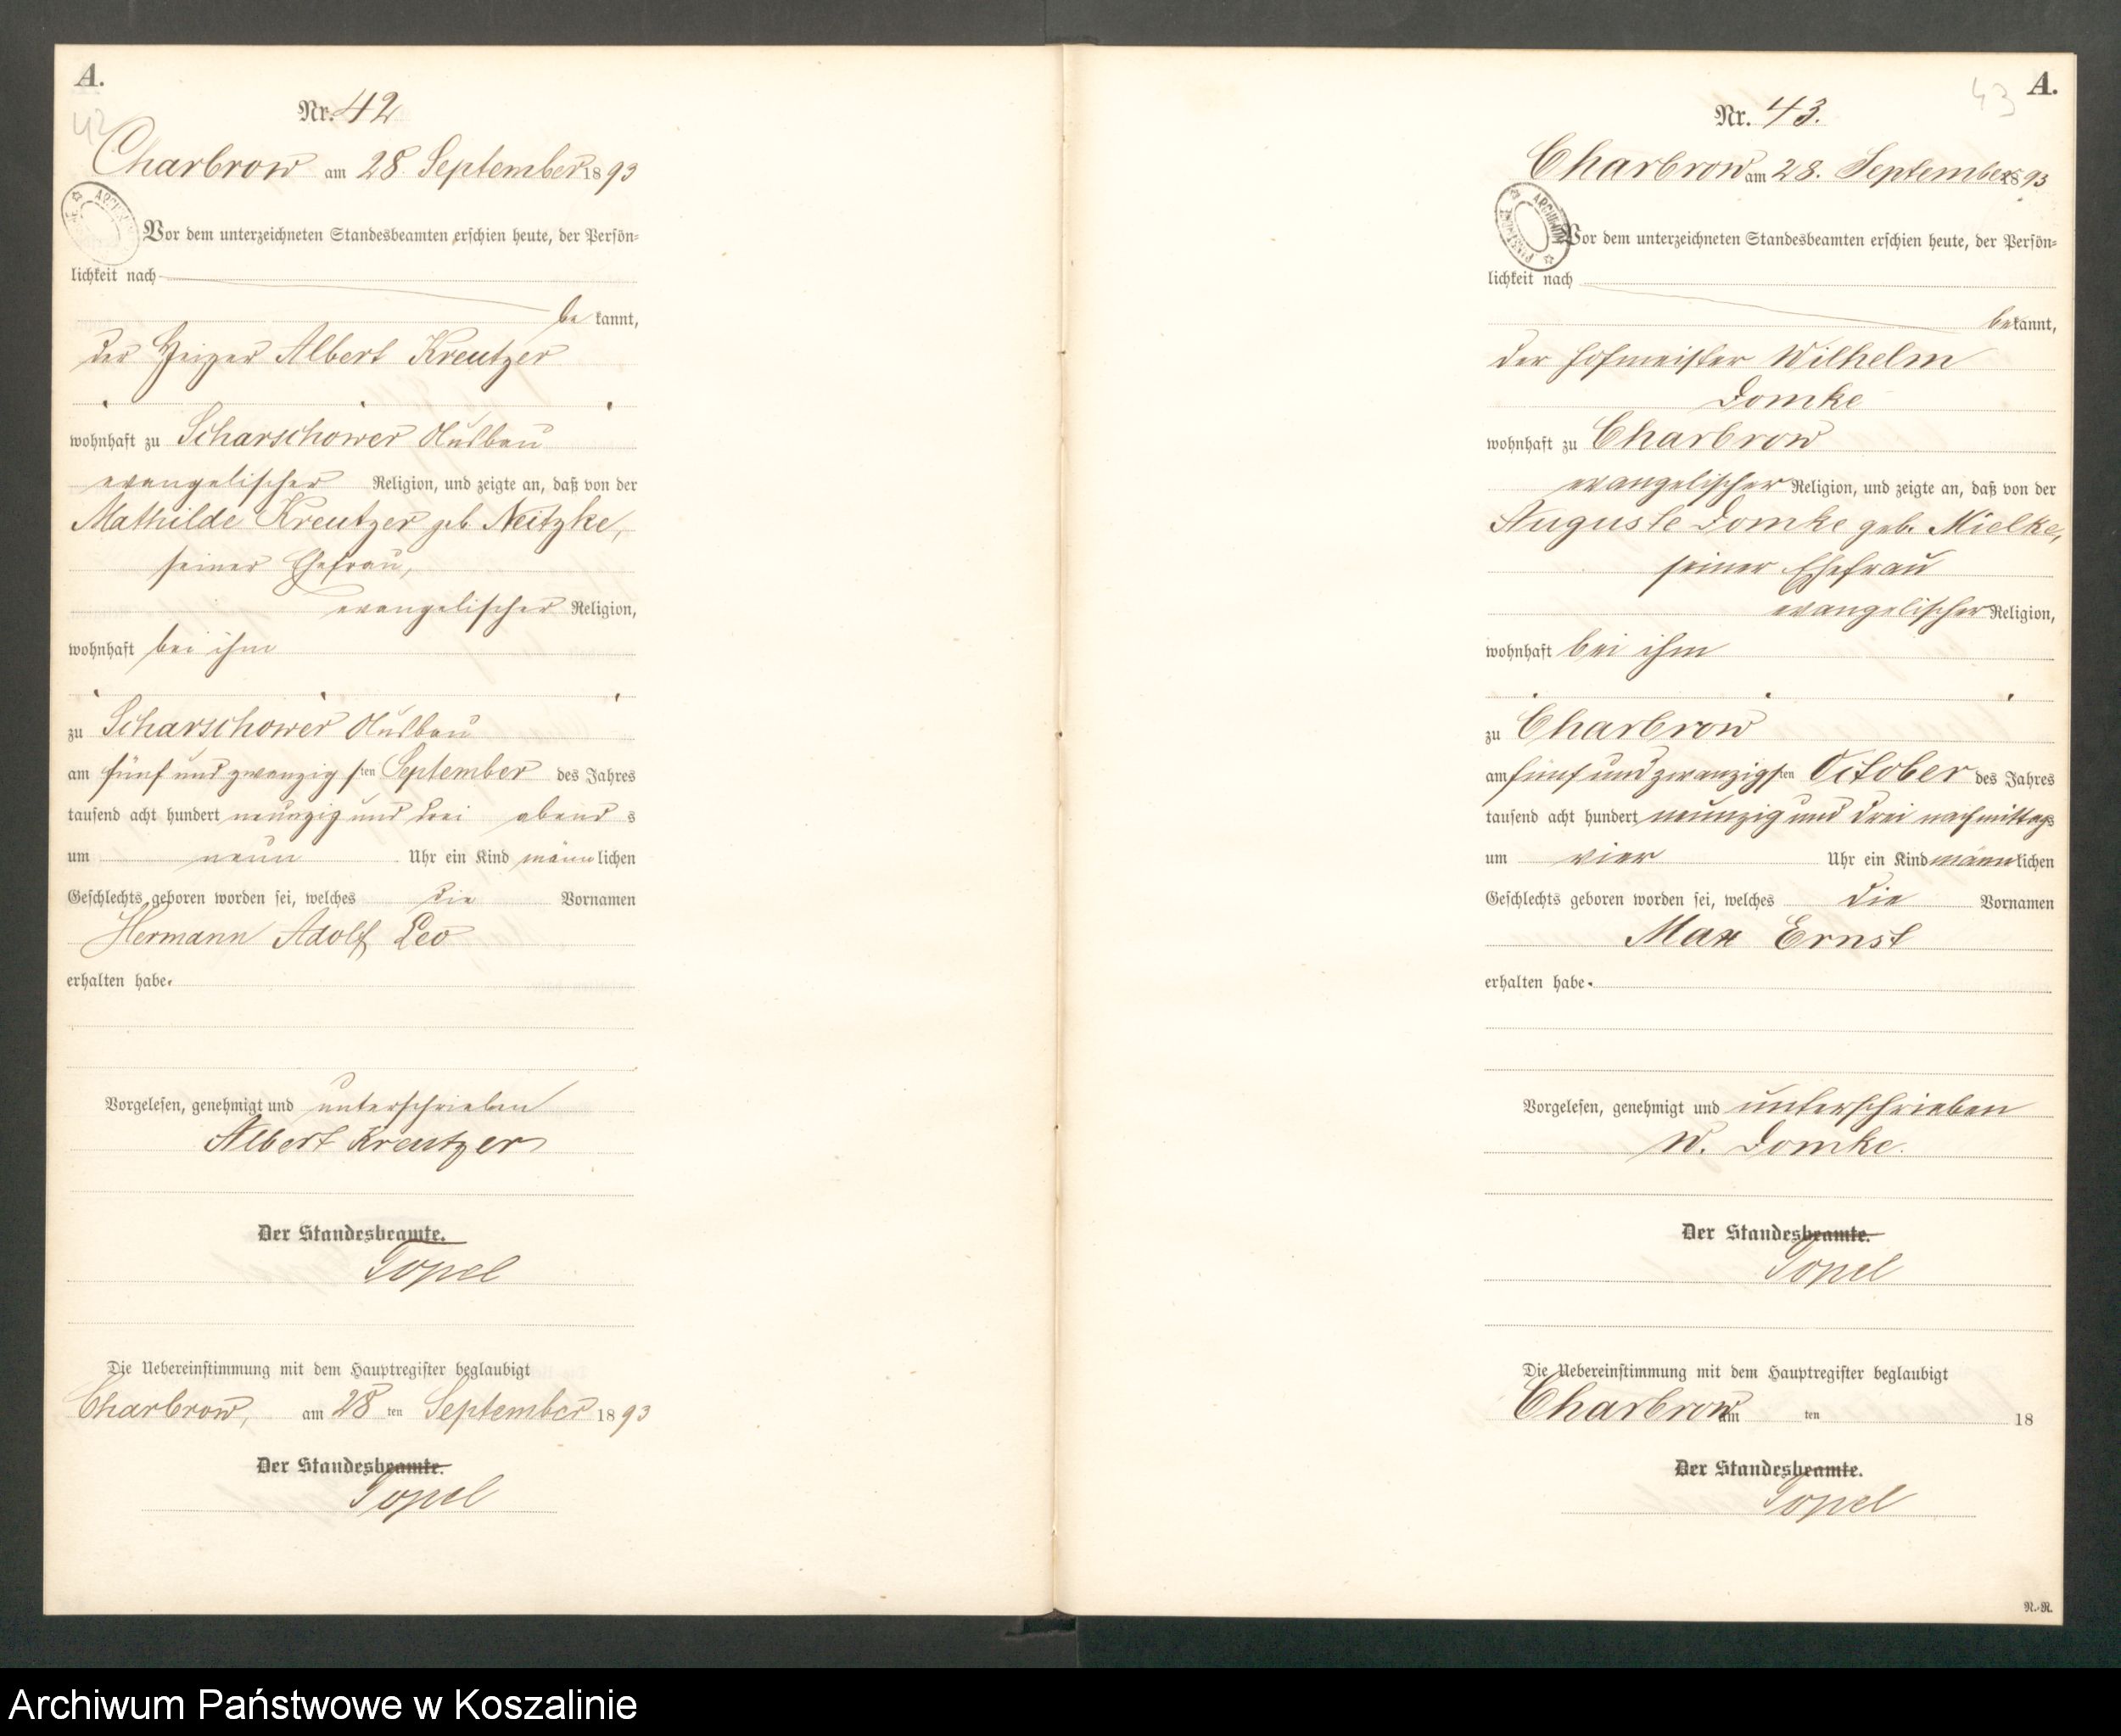 A.
42
Nr. 42
Charbrow am 28. September 1893
Vor dem unterzeichneten Standesbeamten erschien heute, der Persön-
lichkeit nach
bekannt,
der Heizer Albert Kreutzer
wohnhaft zu Scharschower Ausbau
evangelischer Religion, und zeigte an, daß von der
Mathilde Kreutzer geb. Neitzke,
seiner Ehefrau,
evangelischer Religion,
wohnhaft bei ihm
zu Scharschower Ausbau
am fünf und zwanzigsten September des Jahres
tausend acht hundert neunzig und drei abends
um neun Uhr ein Kind männlichen
Geschlechts geboren worden sei, welches die Vornamen
Hermann Adolf Leo
erhalten habe.
Vorgelesen, genehmigt und unterschrieben
Albert Kreutzer
Der Standesbeamte.
Topel
Die Uebereinstimmung mit dem Hauptregister beglaubigt
Charbrow, am 28ten September 1893
Der Standesbeamte.
Topel
A.
43
Nr. 43.
Charbrow am 28. September 1893
ARCHIWUM
Vor dem unterzeichneten Standesbeamten erschien heute, der Persön-
lichkeit nach
bekannt,
der Hofmeister Wilhelm
Domke
wohnhaft zu Charbrow
evangelischer Religion, und zeigte an, daß von der
Auguste Domke geb. Mielke,
seiner Ehefrau
evangelischer Religion,
wohnhaft bei ihm
zu Charbrow
am fünf und zwanzigsten October des Jahres
tausend acht hundert neunzig und drei nachmittags
um vier Uhr ein Kind männlichen
Geschlechts geboren worden sei, welches die Vornamen
Max Ernst
erhalten habe.
Vorgelesen, genehmigt und unterschrieben
W. Domke.
Der Standesbeamte.
Topel
Die Uebereinstimmung mit dem Hauptregister beglaubigt
Charbrow am ten 18
Der Standesbeamte.
Topel
R.-R.
Archiwum Państwowe w Koszalinie